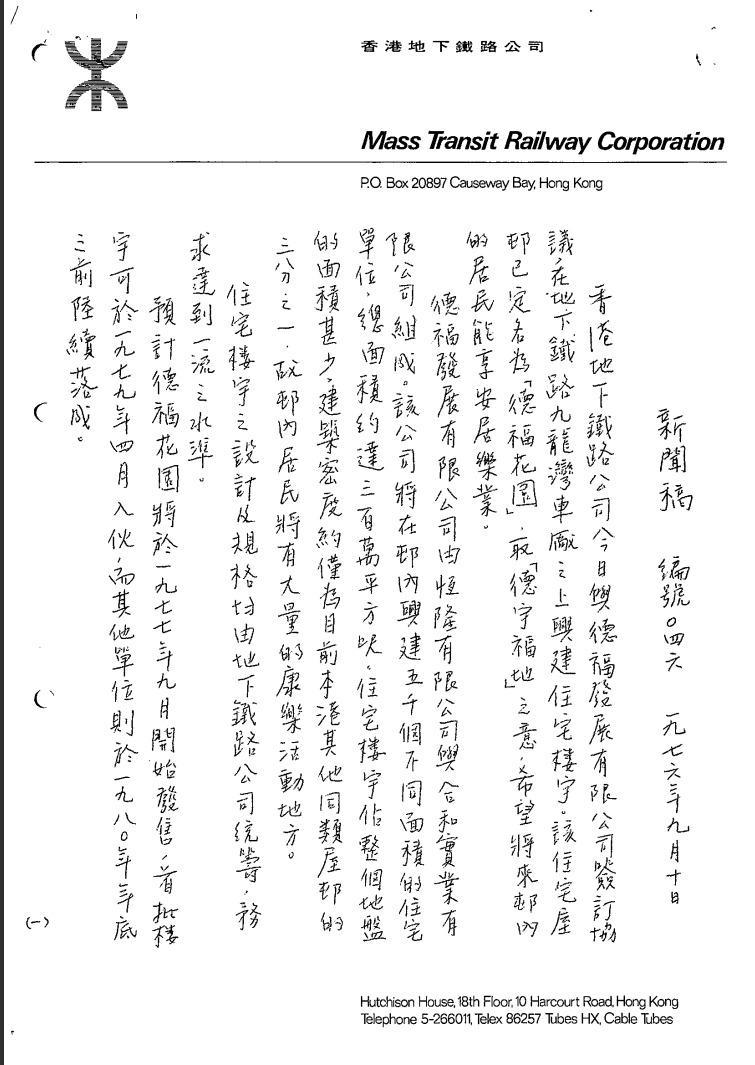 香港地下鐵路公司
Mass Transit Railway Corporation
P.O. Box 20897 Causeway Bay, Hong Kong
新聞稿 編號〇四六 一九七六年九月十日
香港地下鐵路公司今日與德福發展有限公司簽訂協
議,在地下鐵路九龍灣車廠之上興建住宅樓宇。該住宅屋
邨已定名為「德福花園」,取「德宇福地」之意,希望將來邨內
的居民能享安居樂業。
德福發展有限公司由恆隆有限公司與合和實業有
限公司組成。該公司將在邨內興建五千個不同面積的住宅
單位,總面積約達三百萬平方呎,住宅樓宇佔整個地盤
的面積甚少,建築密度約僅為目前本港其他同類屋邨的
三分之一,故邨內居民將有大量的康樂活動地方。
住宅樓宇之設計及規格均由地下鐵路公司統籌,務
求達到一流之水準。
預計德福花園將於一九七七年九月開始發售,首批樓
宇可於一九七九年四月入伙,而其他單位則於一九八〇年年底
之前陸續落成。
(一)
Hutchison House, 18th Floor, 10 Harcourt Road, Hong Kong
Telephone 5-266011, Telex 86257 Tubes HX, Cable Tubes